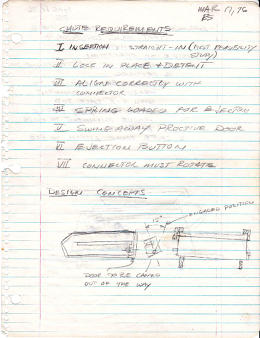 MAR 17, 76
CHUTE REQUIREMENTS
I INSERTION : STRAIGHT-IN (
II LOCK IN PLACE + DETENT
III ALIGN CORRECTLY WITH
CONNECTOR
IV SPRING LOADED FOR EJECTION
V SWING AWAY PROCTIVE DOOR
VI EJECTION BUTTON
VII CONNECTOR MUST ROTATE
DESIGN CONCEPTS
ENGAGED POSITION
DOOR TO BE CAMED
OUT OF THE WAY